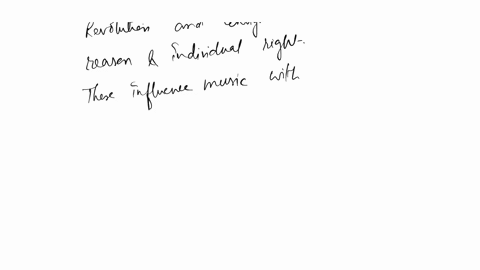 Revolution and
reason & individual right.
These influence music with